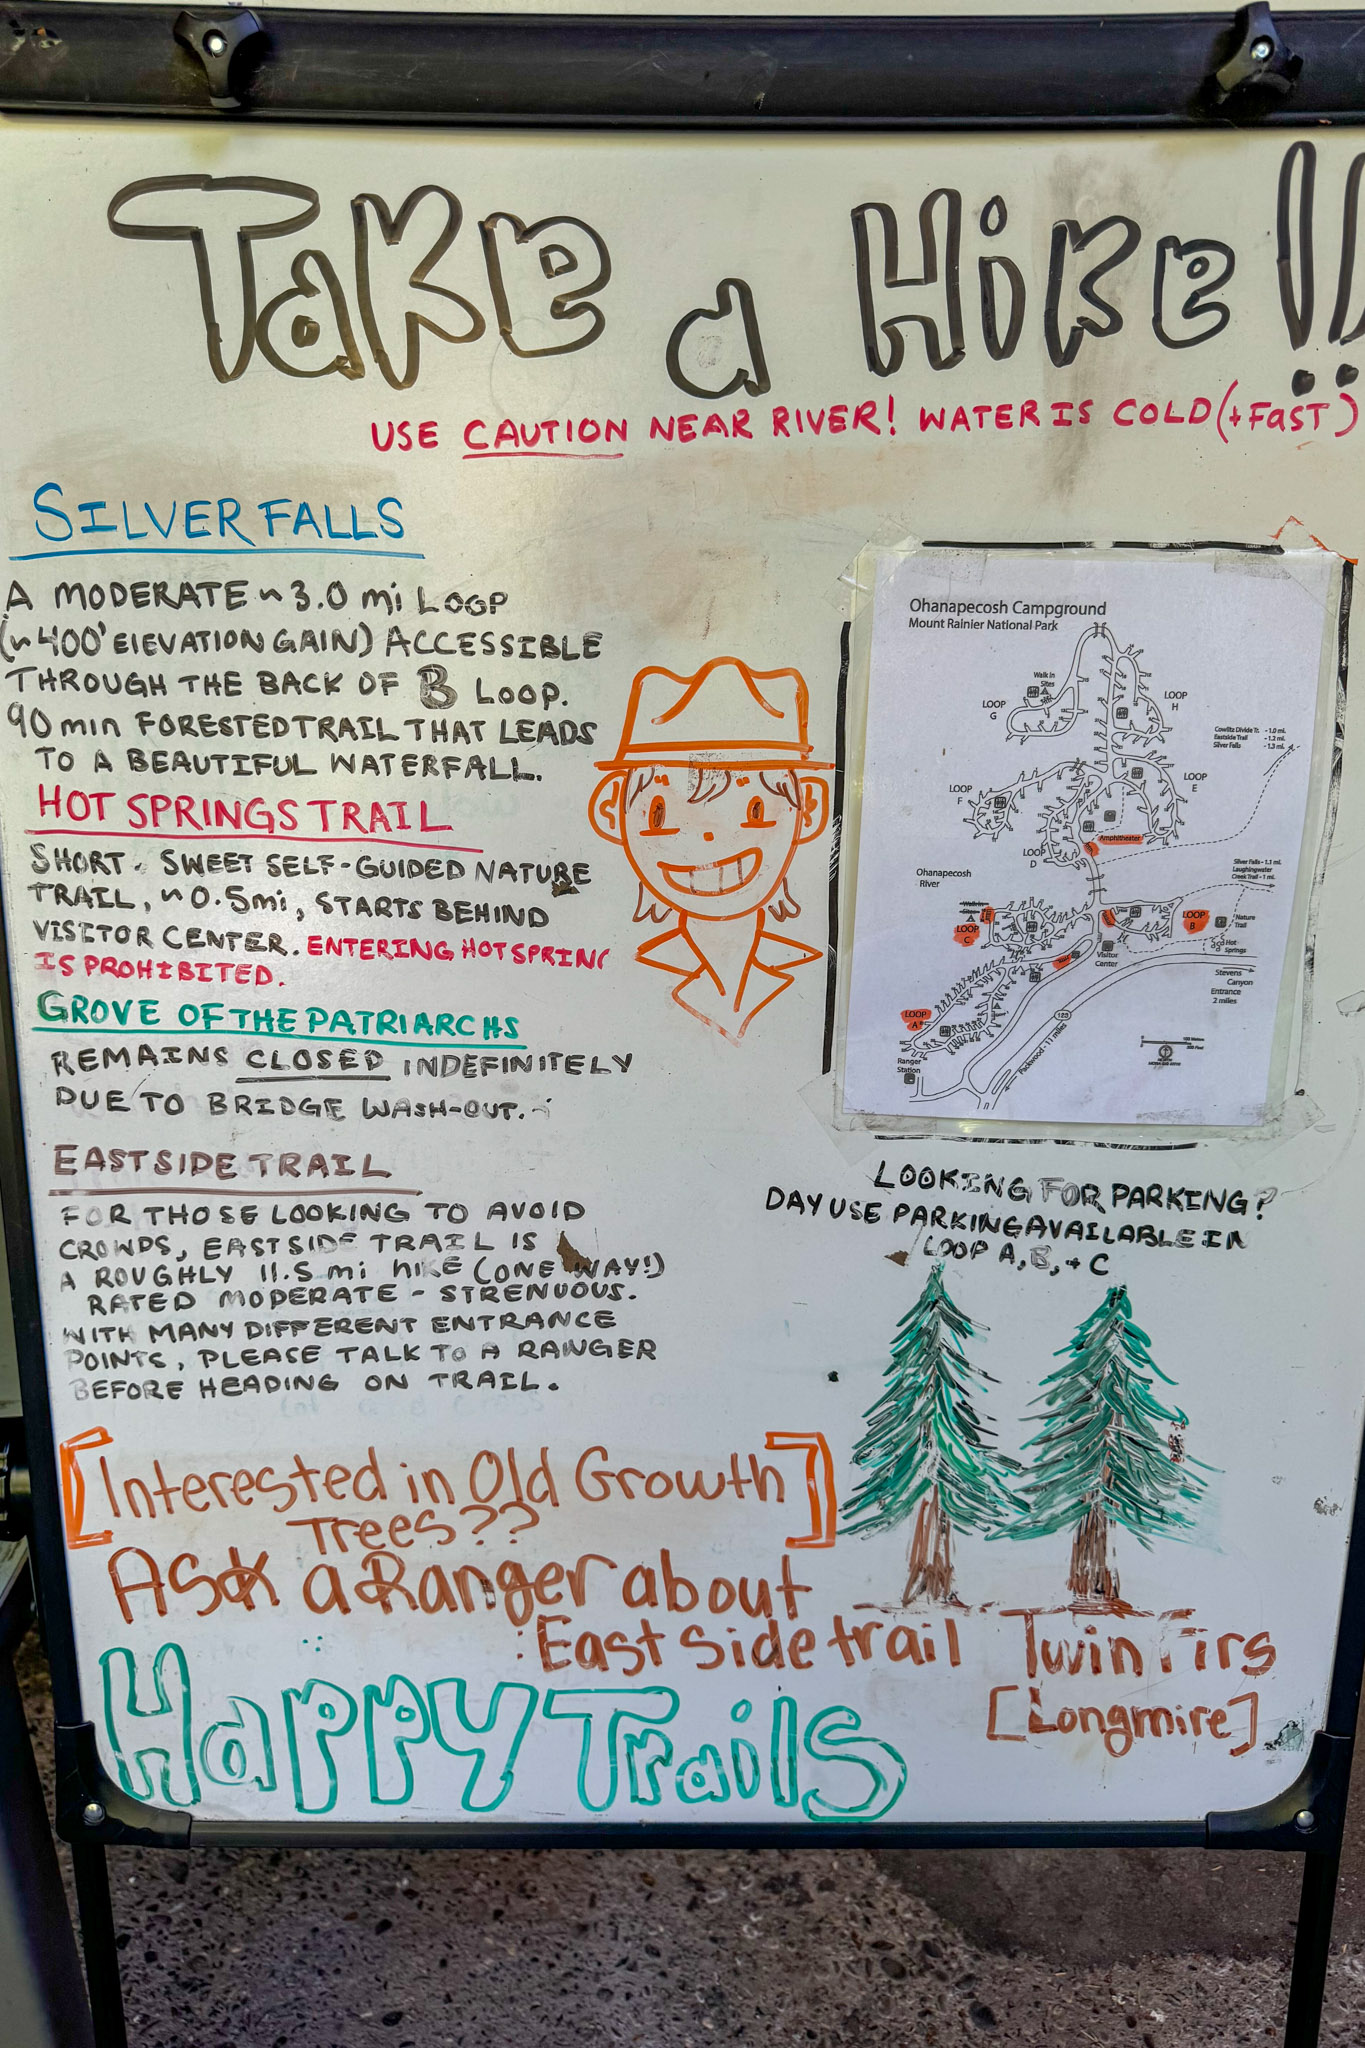 Take a Hike!!
USE CAUTION NEAR RIVER! WATER IS COLD (+ FAST)
SILVER FALLS
A MODERATE ~3.0 mi LOOP
(~400' ELEVATION GAIN) ACCESSIBLE
THROUGH THE BACK OF B LOOP.
90 min FORESTED TRAIL THAT LEADS
TO A BEAUTIFUL WATERFALL.
HOT SPRINGS TRAIL
SHORT + SWEET SELF-GUIDED NATURE
TRAIL, ~0.5mi, STARTS BEHIND
VISITOR CENTER. ENTERING HOT SPRING
IS PROHIBITED.
GROVE OF THE PATRIARCHS
REMAINS CLOSED INDEFINITELY
DUE TO BRIDGE WASH-OUT.
EASTSIDE TRAIL
FOR THOSE LOOKING TO AVOID
CROWDS, EASTSIDE TRAIL IS
A ROUGHLY 11.5 mi HIKE (ONE WAY!)
RATED MODERATE - STRENUOUS.
WITH MANY DIFFERENT ENTRANCE
POINTS, PLEASE TALK TO A RANGER
BEFORE HEADING ON TRAIL.
Ohanapecosh Campground
Mount Rainier National Park
Walk in
Sites
LOOP
G
LOOP
H
Cowlitz Divide Tr. - 1.0 mi.
Eastside Trail - 1.2 mi.
Silver Falls - 1.3 mi.
LOOP
F
LOOP
E
Amphitheater
LOOP
D
Ohanapecosh
River
Silver Falls - 1.1 mi.
Laughingwater
Creek Trail - 1 mi.
Walk-in
Sites
LOOP
C
LOOP
B
Nature
Trail
Hot
Springs
Visitor
Center
Stevens
Canyon
Entrance
2 miles
LOOP
A
123
Packwood - 11 miles
Ranger
Station
LOOKING FOR PARKING?
DAY USE PARKING AVAILABLE IN
LOOP A, B, + C
[Interested in Old Growth
Trees??]
Ask a Ranger about
: East side trail Twin Firs
[Longmire]
Happy Trails